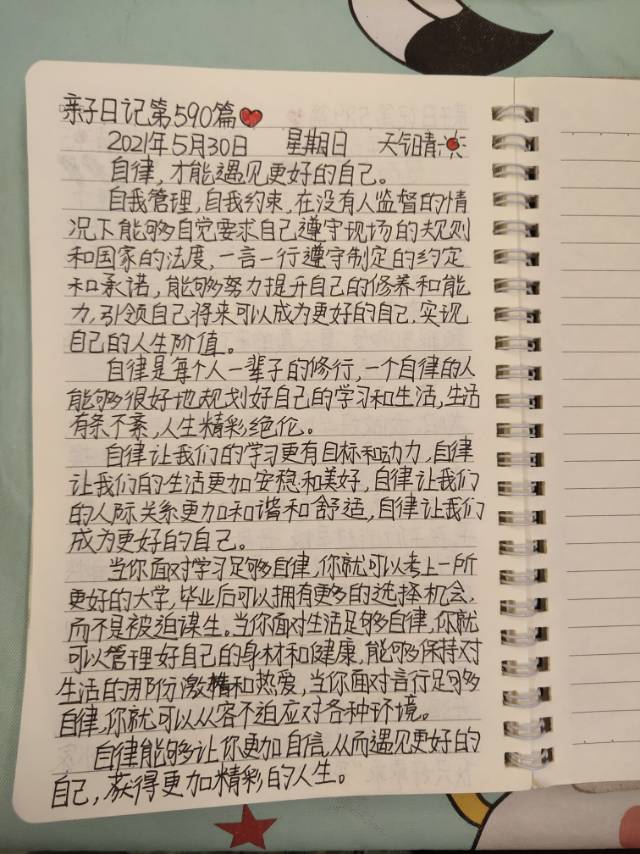 亲子日记第590篇
2021年5月30日 星期日 天气晴
自律,才能遇见更好的自己。
自我管理,自我约束,在没有人监督的情
况下能够自觉要求自己遵守现场的规则
和国家的法度,一言一行遵守制定的约定
和承诺,能够努力提升自己的修养和能
力,引领自己将来可以成为更好的自己,实现
自己的人生价值。
自律是每个人一辈子的修行,一个自律的人
能够很好地规划好自己的学习和生活,生活
有条不紊,人生精彩绝伦。
自律让我们的学习更有目标和动力,自律
让我们的生活更加安稳和美好,自律让我们
的人际关系更加和谐和舒适,自律让我们
成为更好的自己。
当你面对学习足够自律,你就可以考上一所
更好的大学,毕业后可以拥有更多的选择机会,
而不是被迫谋生。当你面对生活足够自律,你就
可以管理好自己的身材和健康,能够保持对
生活的那份激情和热爱,当你面对言行足够
自律,你就可以从容不迫应对各种环境。
自律能够让你更加自信,从而遇见更好的
自己,获得更加精彩的人生。